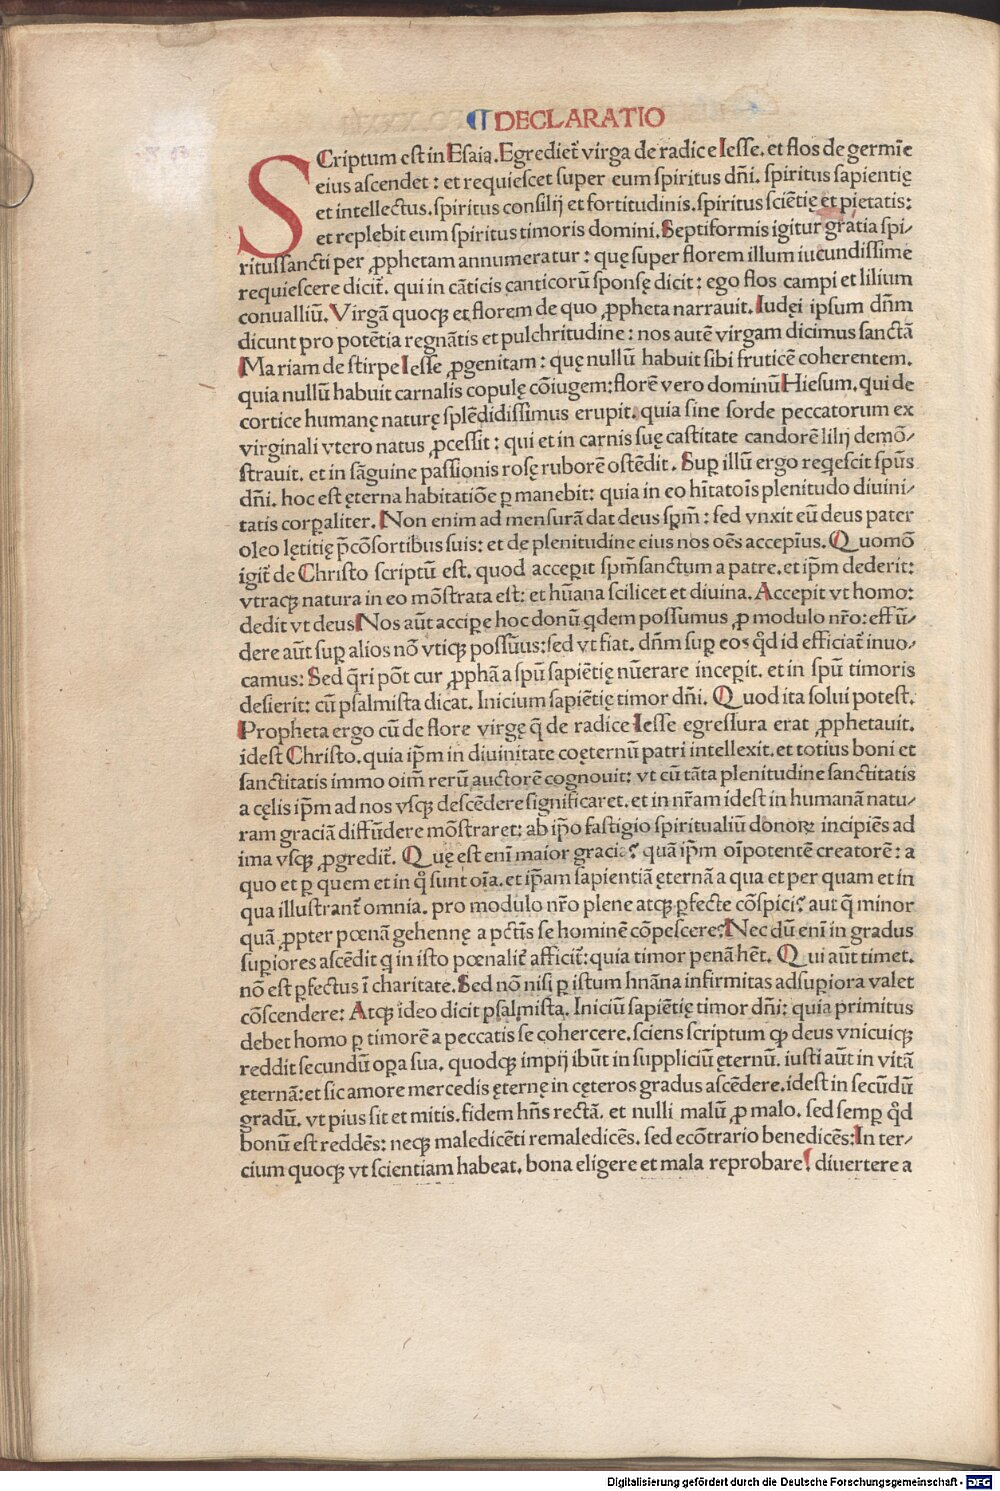 ¶ DECLARATIO
SCriptum est in Esaia. Egrediet̃ virga de radice Iesse. et flos de germīe
eius ascendet: et requiescet super eum spiritus dñi. spiritus sapientię
et intellectus. spiritus consilij et fortitudinis. spiritus sciētię et pietatis:
et replebit eum spiritus timoris domini. Septiformis igitur gratia spi/
ritussancti per ꝓphetam annumeratur: quę super florem illum iucundissime
requiescere dicit̃. qui in cāticis canticorū sponsę dicit: ego flos campi et lilium
conualliū. Virgā quoqꝫ et florem de quo ꝓpheta narrauit. Iudęi ipsum dñm
dicunt pro potētia regnātis et pulchritudine: nos autē virgam dicimus sanctā
Mariam de stirpe Iesse ꝓgenitam: quę nullū habuit sibi fruticē coherentem.
quia nullū habuit carnalis copulę cōiugem: florē vero dominū Hiesum. qui de
cortice humanę naturę splēdidissimus erupit. quia sine sorde peccatorum ex
virginali vtero natus ꝓcessit: qui et in carnis suę castitate candorē lilij demō/
strauit. et in sāguine passionis rosę ruborē ostēdit. Suꝑ illū ergo reqescit spūs
dñi. hoc est ęterna habitatiōe ꝑmanebit: quia in eo hītatoīs plenitudo diuini/
tatis corꝑaliter. Non enim ad mensurā dat deus spm̃: sed vnxit eū deus pater
oleo lętitię p̄cōsortibus suis: et de plenitudine eius nos oēs accepīus. Quomō
igit̃ de Christo scriptū est. quod acceꝑit spm̃sanctum a patre. et ip̄m dederit:
vtraqꝫ natura in eo mōstrata est: et hūana scilicet et diuina. Accepit vt homo:
dedit vt deus Nos aūt acciꝑe hoc donū qdem possumus ꝓ modulo nr̃o: effū/
dere aūt suꝑ alios nō vtiqꝫ possūus: sed vt fiat. dñm suꝑ eos qd̉ id efficiat̃ inuo/
camus: Sed q̄ri pōt cur ꝓphā a spū sapiētię nūerare inceꝑit. et in spū timoris
desierit: cū psalmista dicat. Inicium sapiētię timor dñi. Quod ita solui potest.
Propheta ergo cū de flore virgę q̄ de radice Iesse egressura erat ꝓphetauit.
idest Christo. quia ip̄m in diuinitate coęternū patri intellexit. et totius boni et
sanctitatis immo oim̄ rerū auctorē cognouit: vt cū tāta plenitudine sanctitatis
a cęlis ip̄m ad nos vsqꝫ descēdere significaret. et in nr̃am idest in humanā natu/
ram graciā diffūdere mōstraret: ab ip̄o fastigio spiritualiū donoꝝ incipiēs ad
ima vsqꝫ ꝓgredit̃. Quę est enī maior gracia? quā ip̄m oīpotentē creatorē: a
quo et ꝑ quem et in q̊ sunt oīa. et ip̄am sapientiā ęternā a qua et per quam et in
qua illustrant̃ omnia. pro modulo nr̃o plene atqꝫ ꝑfecte cōspici? aut q̄ minor
quā ꝓpter pœnā gehennę a pctīs se hominē cōpescere? Nec dū enī in gradus
suꝑiores ascēdit q in isto pœnalit̃ afficit̃: quia timor penā hēt. Qui aūt timet.
nō est ꝑfectus ī charitate. Sed nō nisi ꝑ istum hnāna infirmitas adsuꝑiora valet
cōscendere: Atqꝫ ideo dicit psalmista. Iniciū sapiētię timor dñi: quia primitus
debet homo ꝑ timorē a peccatis se cohercere. sciens scriptum ꝙ deus vnicuiqꝫ
reddit secundū oꝑa sua. quodqꝫ impij ibūt in suppliciū ęternū. iusti aūt in vitā
ęternā: et sic amore mercedis ęternę in cęteros gradus ascēdere. idest in secūdū
gradū. vt pius sit et mitis. fidem hñs rectā. et nulli malū ꝓ malo. sed semꝑ qd̉
bonū est reddēs: neqꝫ maledicēti remaledicēs. sed ecōtrario benedicēs: In ter/
cium quoqꝫ vt scientiam habeat. bona eligere et mala reprobare! diuertere a
Digitalisierung gefördert durch die Deutsche Forschungsgemeinschaft - DFG